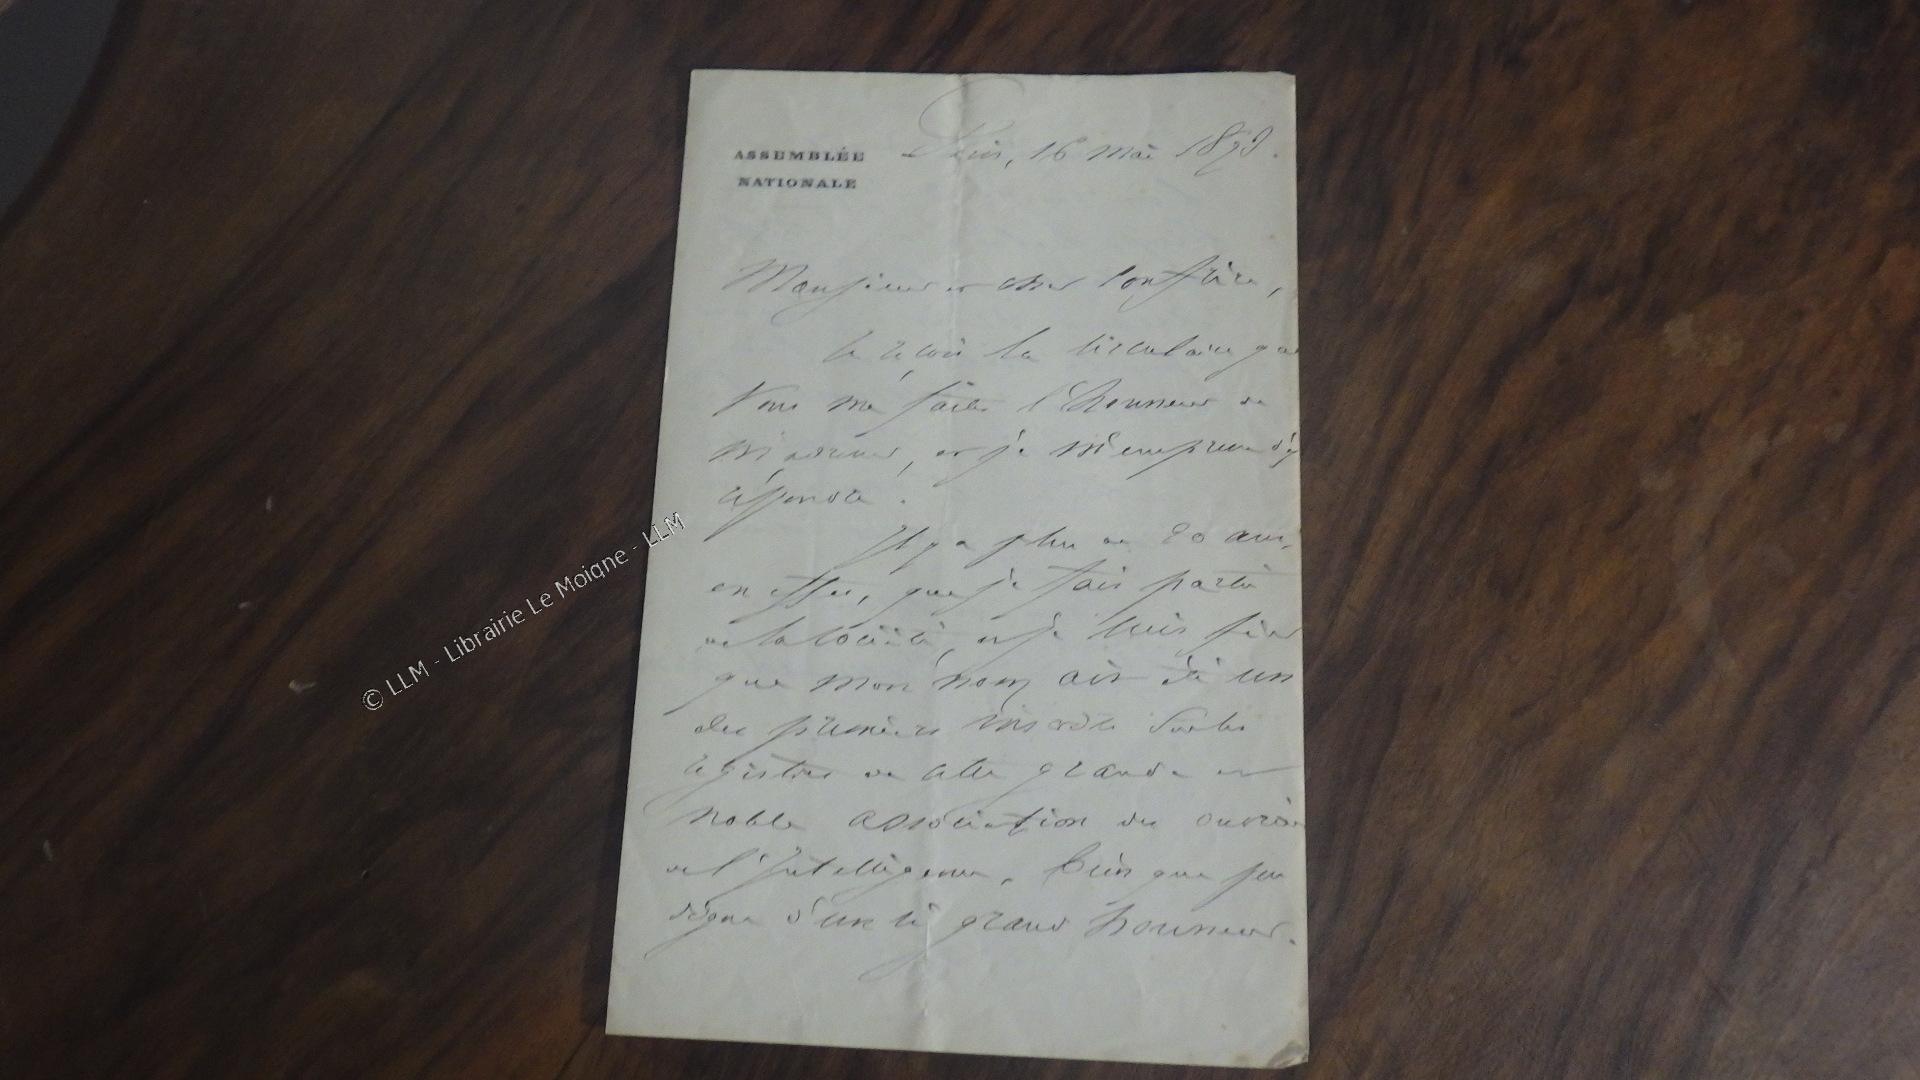 ASSEMBLÉE
NATIONALE
Paris, 16 mai 1873.
Monsieur et cher Confrère,
Je reçois la circulaire que
vous me faites l'honneur de
m'adresser, et je m'empresse d'y
répondre.
Il y a plus de 20 ans,
en effet, que je fais partie
de la Société, et je suis fier
que mon nom ait été un
des premiers inscrits sur les
registres de cette grande et
noble association des ouvriers
de l'Intelligence, bien que peu
digne d'un si grand honneur.
© LLM - Librairie Le Moigne - LLM